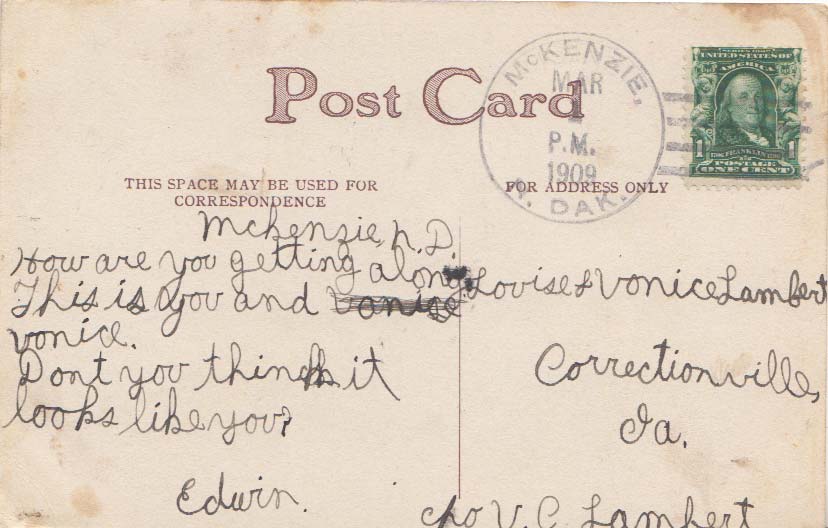 Post Card
McKENZIE,
MAR
1
P.M.
1909
N. DAK.
SERIES 1902
UNITED STATES OF
AMERICA
1 1
1706 FRANKLIN 1790
POSTAGE
ONE CENT
THIS SPACE MAY BE USED FOR
CORRESPONDENCE
FOR ADDRESS ONLY
Mckenzie, N.D.
How are you getting along.
This is you and Vonice
vonice.
Dont you think it
looks like you?
Edwin.
Lovise & Vonice Lambert
Correctionville,
Ia.
c/o V.C. Lambert